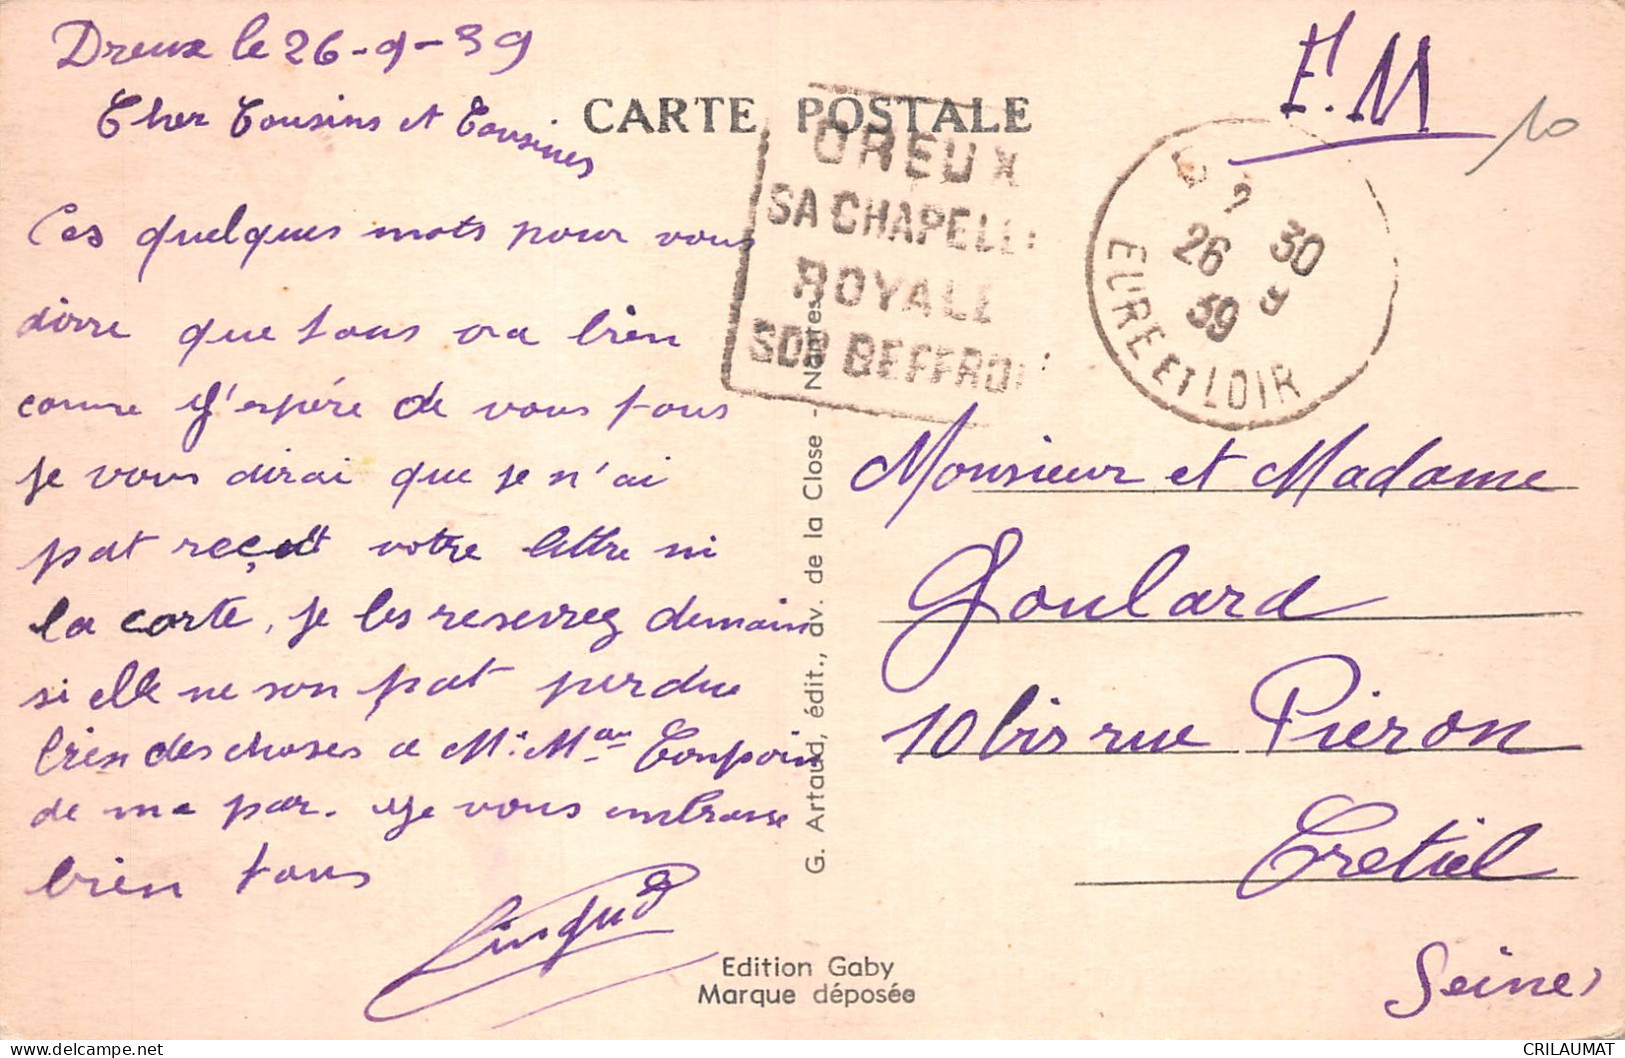 Dreux le 26-9-39
Cher Cousins et Cousines
Ces quelques mots pour vous
dire que tous va bien
comme J'espére de vous tous
Je vous dirai que je n'ai
pat reçut votre lettre ni
la carte, je les reseverez demain
si elle ne son pat perdue
bien des choses a Mr. Mau Coupoin
de ma par. Je vous embrasse
bien tous
CARTE POSTALE
DREUX
SA CHAPELLE
ROYALE
SON BEFFROI
30
26 9
39
EURE ET LOIR
F.M
10
Monsieur et Madame
Goulard
10 bis rue Piéron
Creteil
Seine
G. Artaud, édit., av. de la Close - Nantes
Edition Gaby
Marque déposée
CRILAUMAT